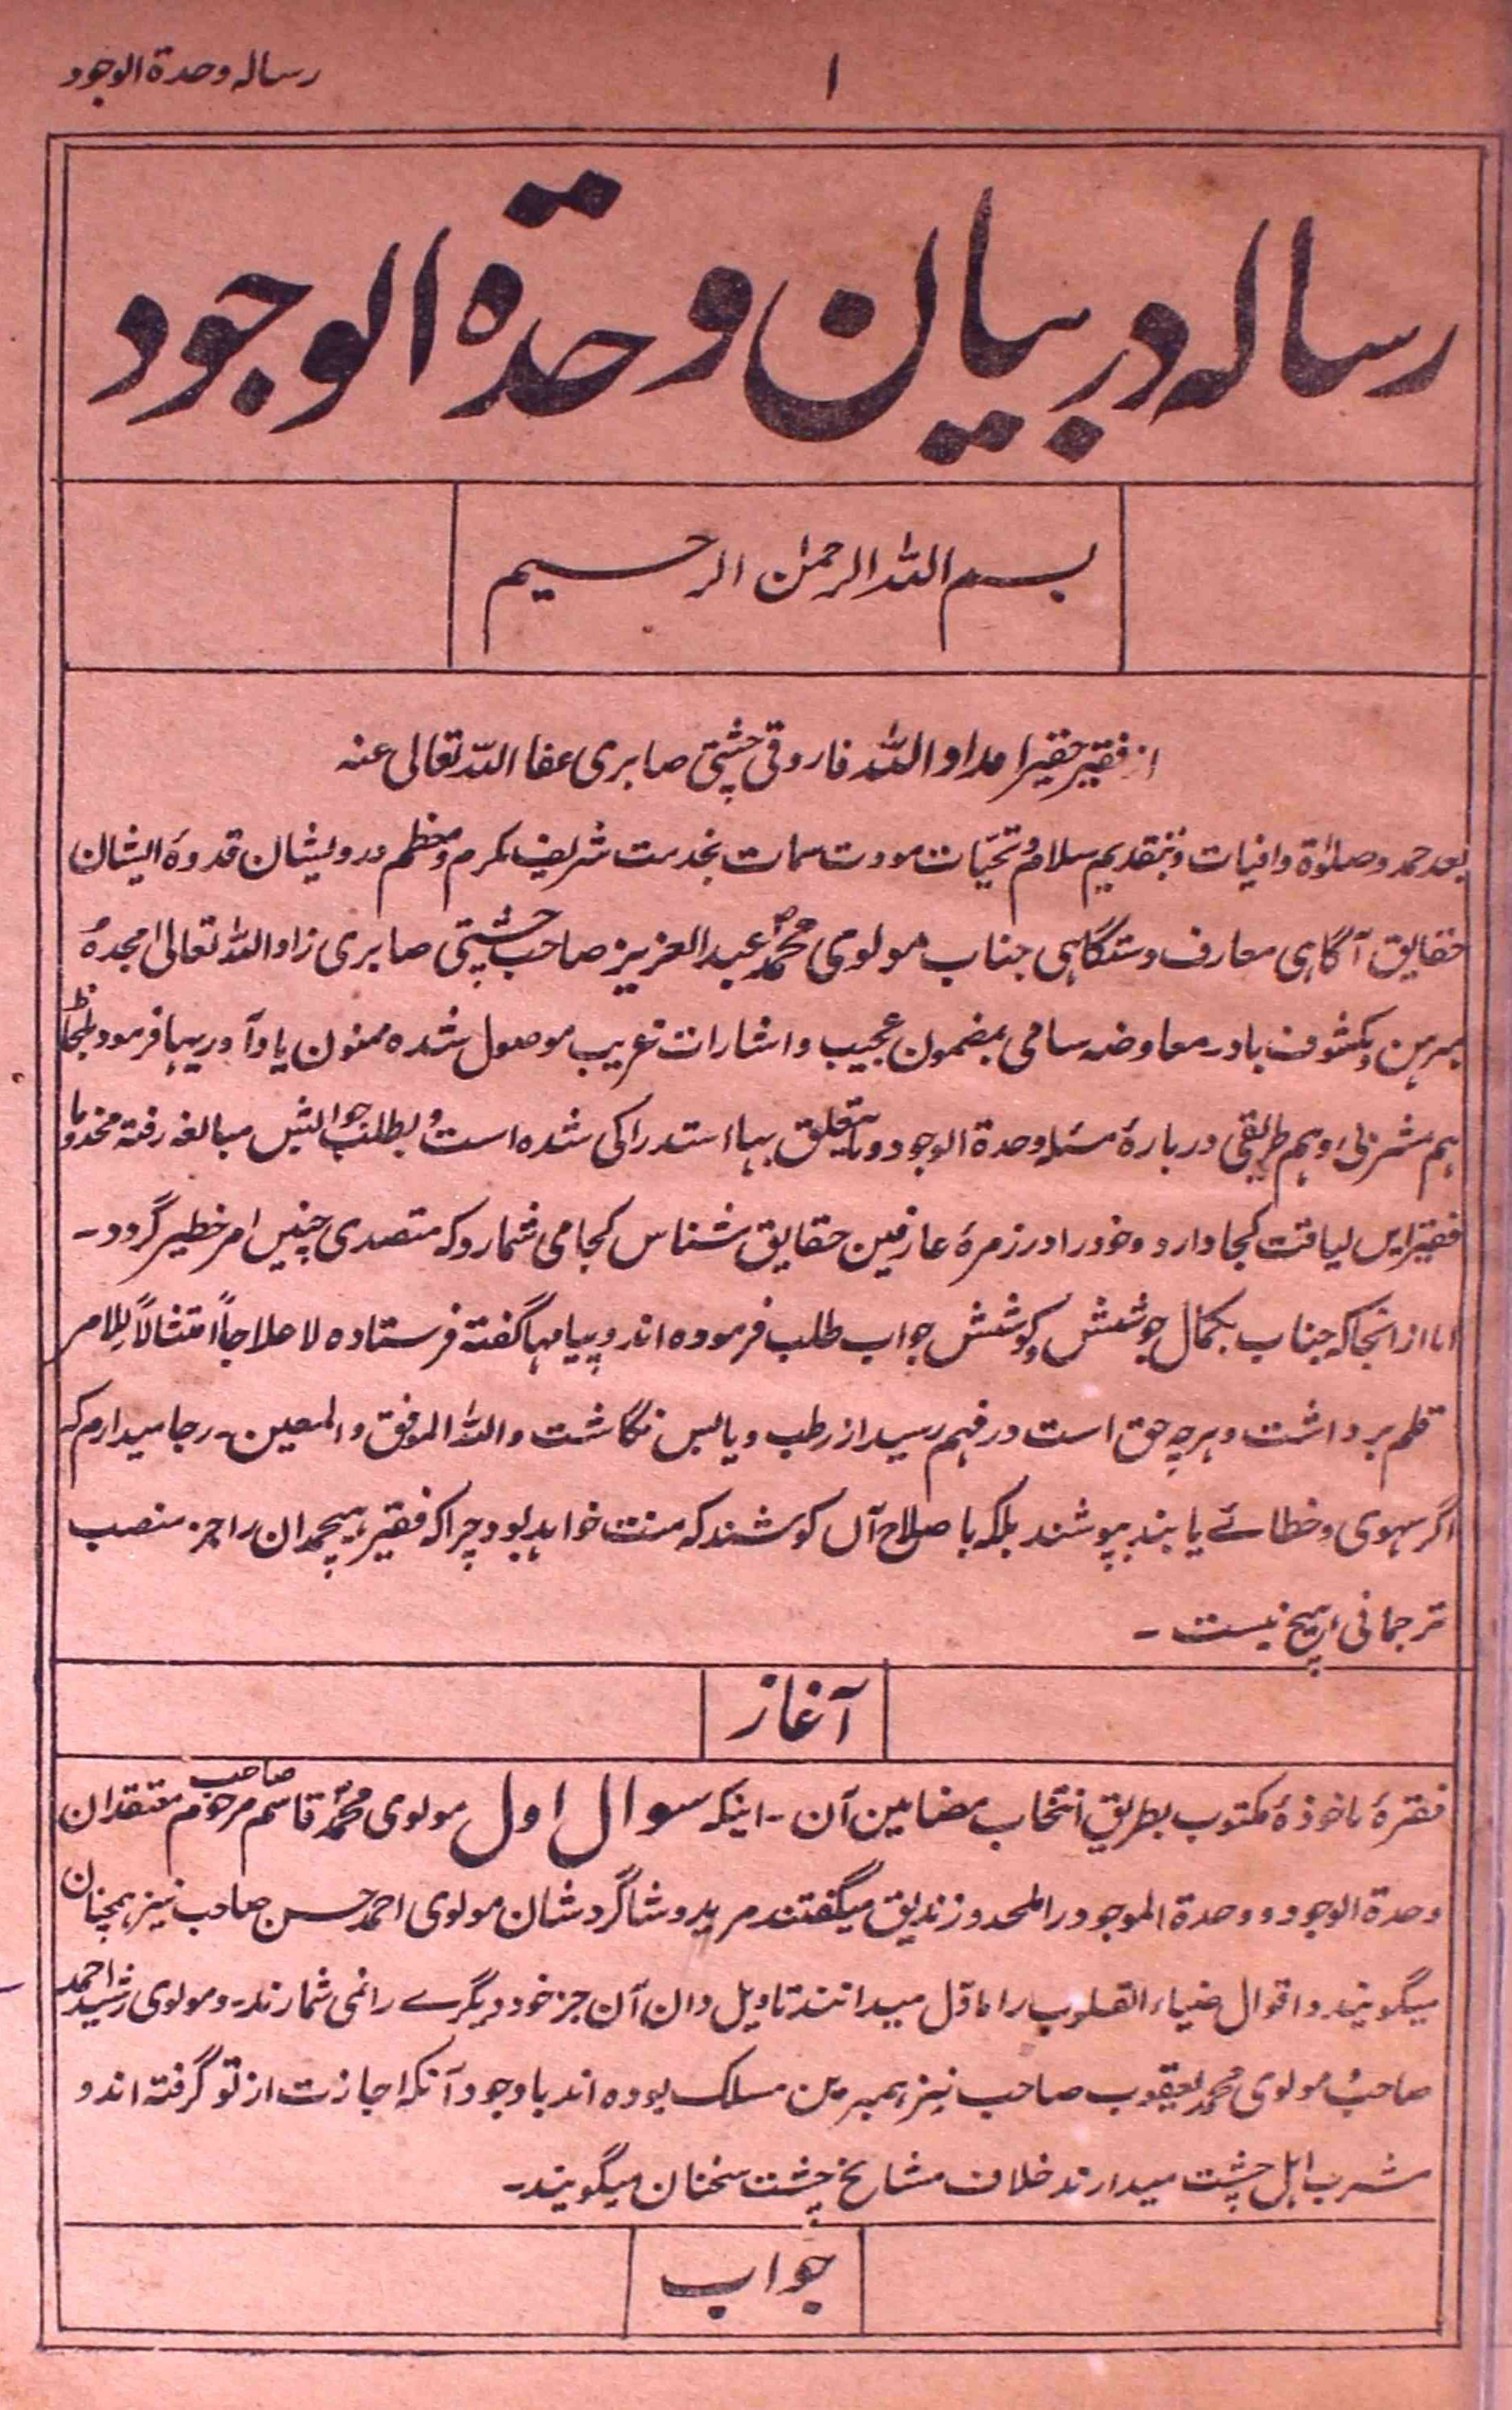 رساله وحدة الوجود
۱
رساله در بیان وحدة الوجود
بسم الله الرحمن الرحیم
از فقیر حقیر امداد الله فاروقی چشتی صابری عفا الله تعالی عنه
بعد حمد و صلوٰة وافیات و بتقدیم سلام و تحیّات مودت سمات بخدمت شریف مکرم و معظم درویشان قدوۀ ایشان
حقایق آگاهی معارف دستگاهی جناب مولوی محمدؐ عبد العزیز صاحب چشتی صابری زاد الله تعالیٰ امجدهٗ
مبرهن و مکشوف باد در معاوضه سامی بمضمون عجیب و اشارات غریب موصول شده ممنون یاد آوریها فرمود بلحاظ
هم مشربی و هم طریقی در بارۀ مسئله وحدة الوجود و ما یتعلق بها استدراکی شده است و بطلب جوابش مبالغه رفته مخدوما
فقیر ایں لیاقت کجا دارد و خود را در زمرۀ عارفین حقایق شناس کجا می شمارد که متصدی چنیں امر خطیر گردد۔
اما از انجا که جناب بکمال جوشش و کوشش جواب طلب فرموده اند و پیامها گفته فرستاده لا علاجاً امتثالاً للامر
قلم برداشت و هرچه حق است در فهم رسید از رطب و یابس نگاشت والله الموفق والمعین۔ رجا میدارم که
اگر سهوی و خطائے یابند بپوشند بلکه باصلاح آں کوشند که منت خواهد بود چرا که فقیر هیچمدان را جز منصب
ترجمانی هیچ نیست ۔
آغاز
فقرۀ ماخوذۀ مکتوب بطریق انتخاب مضامین آن ۔ اینکه سوال اول مولوی محمدؐ قاسم صاحب مرحوم معتقدان
وحدة الوجود و وحدة الموجود را ملحد و زندیق میگفتند مرید و شاگرد شان مولوی احمد حسن صاحب نیز همچنان
میگویند و اقوال ضیاء القلوب را ماوّل میدانند تاویل دان آن جز خود دیگرے را نمی شمارند۔ و مولوی رشید احمد
صاحب و مولوی محمد یعقوب صاحب نیز همبرین مسلک بوده اند باوجود آنکه اجازت از تو گرفته اند و
مشرب اهل چشت میدارند خلاف مشایخ چشت سخنان میگویند۔
جواب